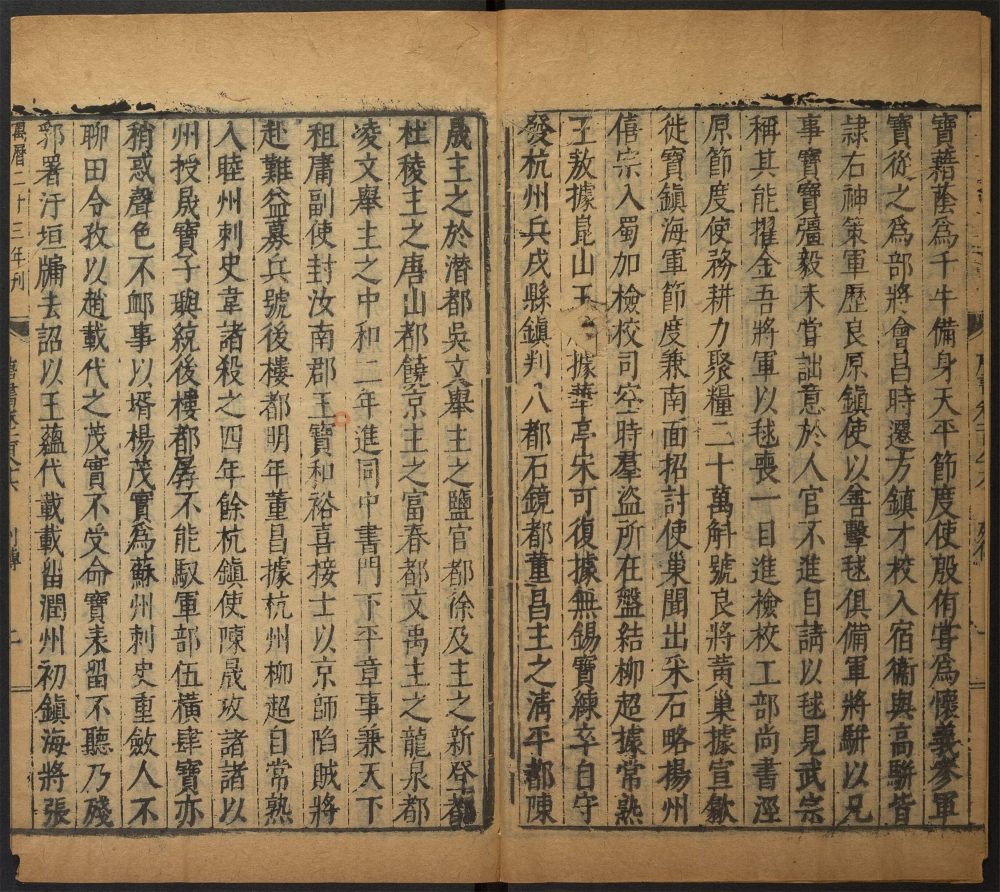 寶藉蔭爲千牛備身天平節度使殷侑嘗爲懷義參軍
寶從之爲部將會昌時選方鎮才校入宿衞與高駢皆
隸右神策軍歷良原鎮使以善擊毬俱備軍將駢以兄
事寶寶彊毅未嘗詘意於人官不進自請以毬見武宗
稱其能擢金吾將軍以毬喪一目進檢校工部尚書涇
原節度使務耕力聚糧二十萬斛號良將黃巢據宣歙
徙寶鎮海軍節度兼南面招討使巢聞出采石略楊州
僖宗入蜀加檢校司空時羣盜所在盤結柳超據常熟
王敖據崑山王 據華亭宋可復據無錫寶練卒自守
發杭州兵戍縣鎮判八都石鏡都董昌主之淸平都陳
晟主之於潛都吳文舉主之鹽官都徐及主之新登都
杜稜主之唐山都饒京主之富春都文禹主之龍泉都
凌文舉主之中和二年進同中書門下平章事兼天下
租庸副使封汝南郡王寶和裕喜接士以京師陷賊將
赴難益募兵號後樓都明年董昌據杭州柳超自常熟
入睦州刺史韋諸殺之四年餘杭鎮使陳晟攻諸諸以
州授晟寶子璵統後樓都孱不能馭軍部伍橫肆寶亦
稍惑聲色不䘏事以壻楊茂實爲蘇州刺史重斂人不
聊田令孜以趙載代之茂實不受命寶表留不聽乃殘
郛署汙垣牖去詔以王蘊代載載留潤州初鎮海將張
萬曆二十三年刊
列傳